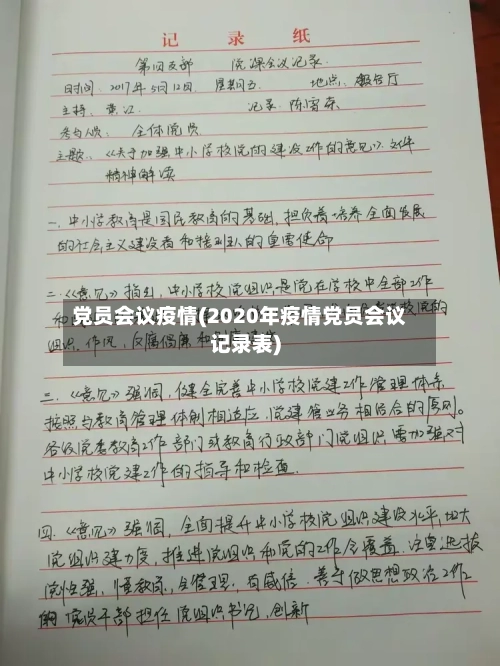 记 录 纸
第四支部 党课会议记录
时间: 2017年5月12日. 星期五. 地点: 报告厅
主持: 黄江 记录:
参与人员: 全体党员
主题:《关于加强中小学校党的建设工作的意见》文件
精神解读
一、中小学教育是国民教育的基础,担负着培养全面发展
的社会主义建设者和接班人的重要使命
二.《意见》指出,中小学校党组织是党在学校中全部工作
党员会议疫情(2020年疫情党员会议
记录表)
组织、作风、反腐倡廉和制度
三.《意见》强调,健全完善中小学校党建工作管理体系
按照与教育管理体制相适应、党建管业务相结合的原则。
各级党委教育工作部门或教育行政部门党组织需加强对
中小学校党建工作的指导和检查
四.《意见》强调,全面提升中小学校党组织建设水平,加大
党组织建力度,推进党组织和党的工作全覆盖.注重选拔
党性强,懂教育,会管理,有威信,善于做思想政治工作
的党员干部担任党组织书记,创新